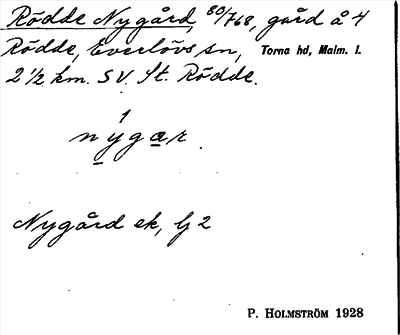 Rödde Nygård, 80/768, gård å 4
Rödde, Everlövs sn, Torna hd, Malm. l.
2 1/2 km. SV. St. Rödde.
nýgar.
Nygård ek, Gj 2
P. HOLMSTRÖM 1928